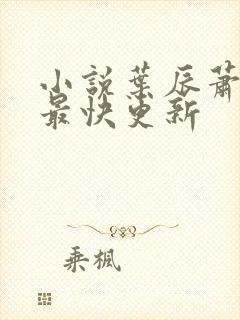 小说葉辰蕭
最快更新
乘楓